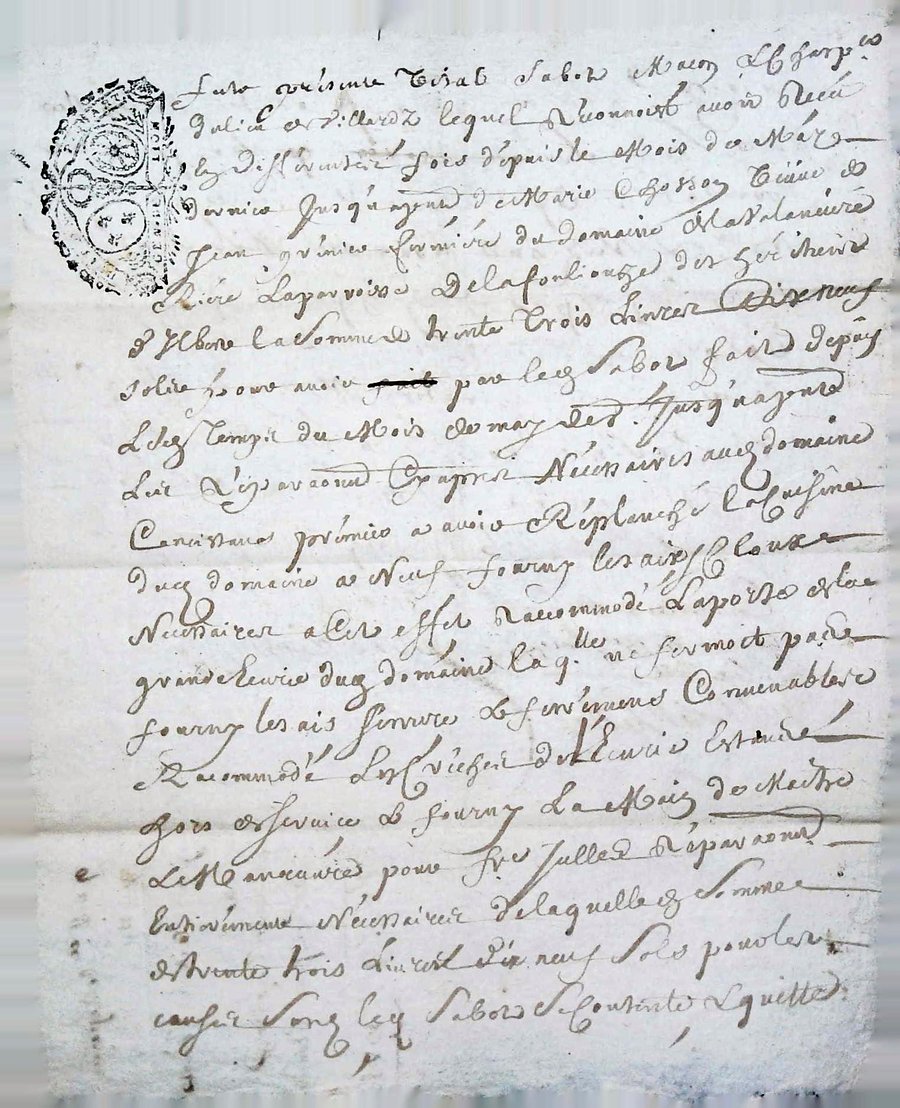 Fute présente Vital Sabot Maçon & Charp.
du lieu de Villard lequel Reconnoist avoir Reçu
En Differentes fois depuis le Mois de Mars
dernier Jusqu'a présent de Marie Chosson Veuve de
Jean grénier fermière du domaine
Riere La parroisse De la foulhouse des héritiers
la Somme de trente Trois Livres Dix neuf
solz pour avoir par led Sabot fait depuis
Led Temps du Mois de may der Jusqu'a present
Les Réparaõns Cy apres Nécessaires aud domaine
Concistant prémier a avoir Réplanché la Cuisine
dud domaine a Neuf fourny les aix & Cloux
Nécessaires a Cet effet Raccommodé La porte de la
grande Ecurie dud doméine laq.lle ne fermoit pas
fourny les ais serrure & ferrement Convenables
Racommodé Les Créches de l'Ecurie Estant
hors de service & fourny La Main de Maitre
& Manœuvre pour Réparaõns
Entiérement Nécessaires de laquelle d Somme
de trente trois Livres dix neuf Sols pour les
causes led Sabot Se Contente & quitte